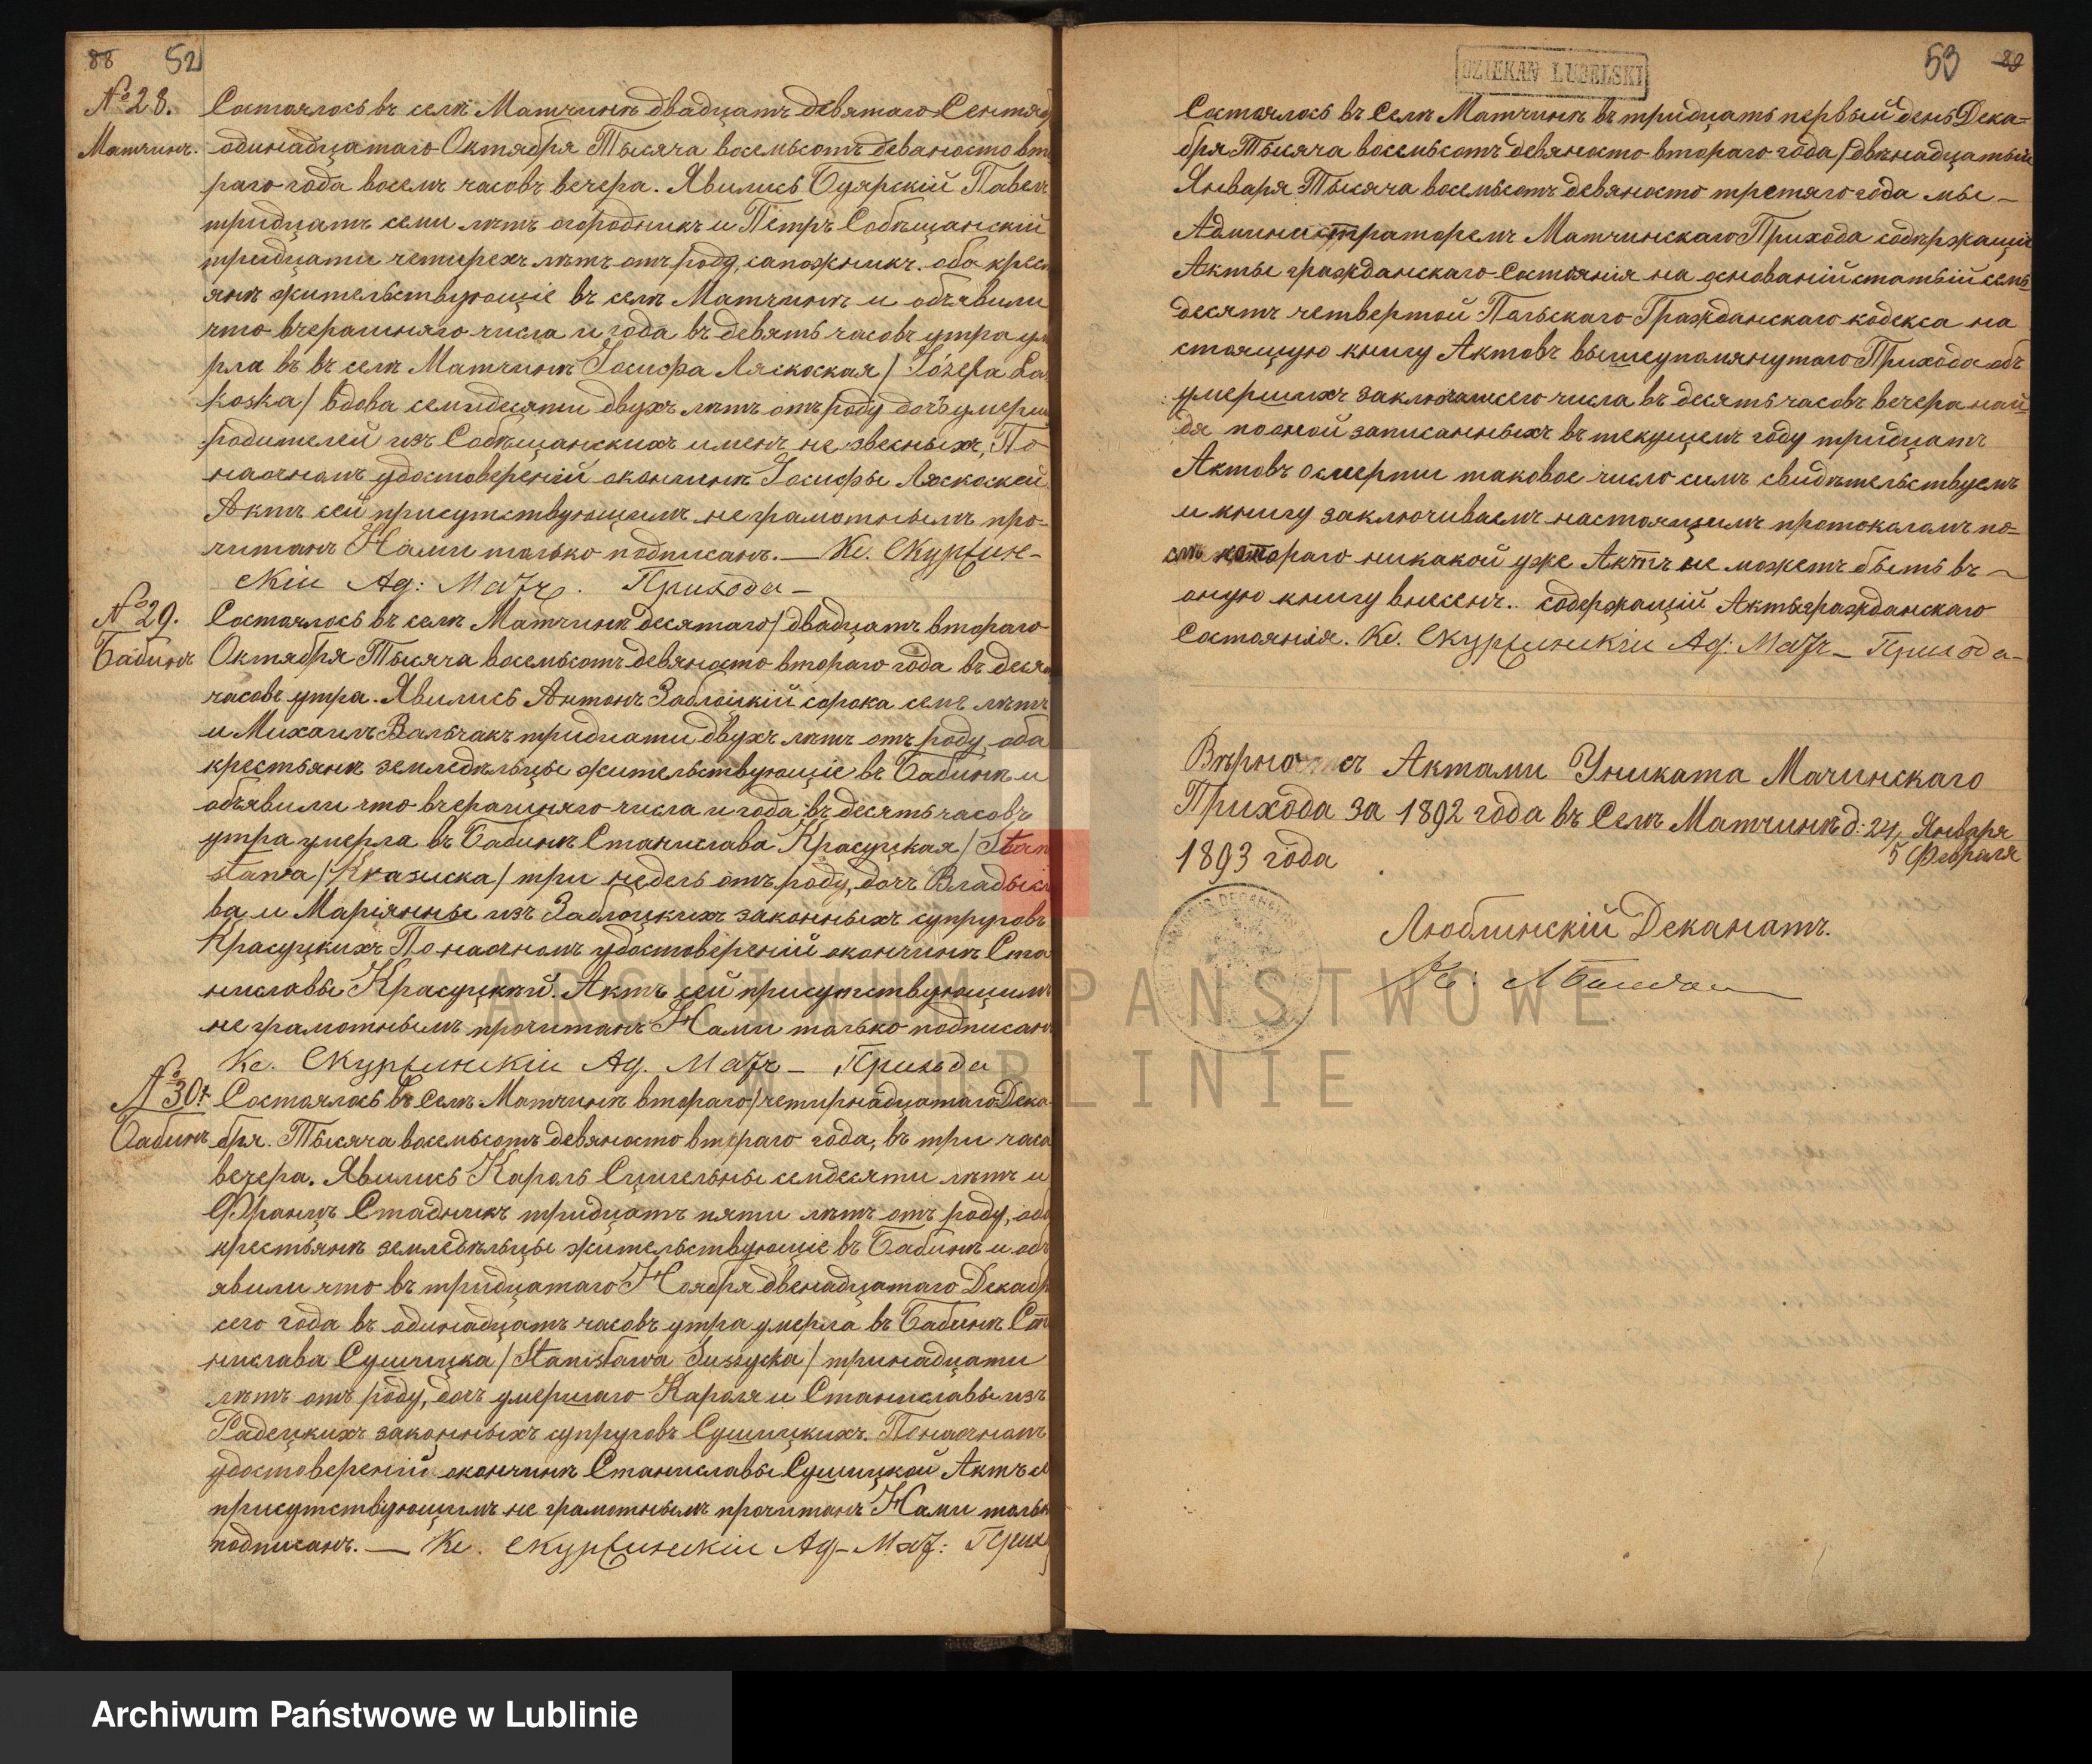 88 52
№ 28.
Матчинъ.
Состоялось въ селѣ Матчинѣ двадцать девятаго Сентяб
одинадцатаго Октября Тысяча восемьсотъ девяносто вто
раго года восемь часовъ вечера. Явились Боярскій Павелъ
тридцать семи лѣтъ огородникъ и Петръ Собѣщанскій
тридцати четырехъ лѣтъ отъ роду, сапожникъ. оба крест
янѣ жительствующіе въ селѣ Матчинѣ и объявили
что вчерашняго числа и года въ девять часовъ утра ум
рла въ въ селѣ Матчинѣ Іосифа Ляскоская / Józefa La
koska / вдова семидесяти двухъ лѣтъ отъ роду дочь умерш
родителей изъ Собѣщанскихъ именъ не звесныхъ, По
наочномъ удостовереній окончинѣ Іосифы Ляскоской
Актъ сей присутствующимъ неграмотнымъ про-
читанъ Нами только подписанъ. — Кс. Скурѣин-
скіи Ад: Матч. Прихода —
№ 29.
Бабинъ
Состоялось въ селѣ Матчинѣ десятаго / двадцать втораго
Октября Тысяча восемьсотъ девяносто втораго года въ деся
часовъ утра. Явились Антонъ Заблоцкій сорока семь лѣтъ
и Михаилъ Вальчакъ тридцати двухъ лѣтъ отъ роду, оба
крестьянѣ земледѣльцы жительствующіе въ Бабинѣ и
объявили что вчерашняго числа и года въ десять часовъ
утра умерла въ Бабинѣ Станислава Красуцкая / Stan
sława / Krasucka / три недель отъ роду, дочь Владысла
ва и Маріянны изъ Заблоцкихъ законныхъ супруговъ
Красуцкихъ По наочномъ удостовереній окончинѣ Ста
ниславы Красуцкой. Актъ сей присутствующимъ
не грамотнымъ прочитанъ Нами только подписанъ
Кс. Скурѣинскіи Ад. Матч — Прихода
№ 30.
Бабинъ
Состоялось въ Селѣ Матчинѣ втораго / четырнадцатаго Дека
бря. Тысяча восемьсотъ девяносто втораго года, въ три часа
вечера. Явились Кароль Сцигельны семдесяти лѣтъ и
Францъ Стадникъ тридцать пяти лѣтъ отъ роду, оба
крестьянѣ земледѣльцы жительствующіе въ Бабинѣ и объ
явили что въ тридцатаго Ноября двенадцатаго Декабр
сего года въ одинадцать часовъ утра умерла въ Бабинѣ Ста
нислава Сушицка / Stanisława Suszycka / тринадцати
лѣтъ отъ роду, дочь умершаго Кароля и Станиславы изъ
Радецкихъ законныхъ супруговъ Сушицкихъ. По наочномъ
удостовереній окончинѣ Станиславы Сушицкой Актъ с
присутствующимъ не грамотнымъ прочитанъ Нами тольк
подписанъ. — Кс. Скурѣинскіи Ад — Матч: Прих
53 89
DZIEKAN LUBELSKI
Состоялось въ Селѣ Матчинѣ въ тридцать первый день Дека=
бря Тысяча восемьсотъ девяносто втораго года / двѣнадцатый
Января Тысяча восемьсотъ девяносто третяго года мы —
Администраторемъ Матчинскаго Прихода содѣржащіи
Акты гражданскаго Состоянія на основаній статьій семь
десятъ четвертой Польскаго Гражданскаго кодекса на
стоящую книгу Актовъ вышеупомянутаго Прихода объ
умершихъ заключ числа въ десять часовъ вечера най
дя по оной записанныхъ въ текущемъ году тридцать
Актовъ осмерти таковое число симъ свидѣтельствуемъ
и книгу заключиваемъ настоящимъ протоколомъ по=
слѣ котораго никакой уже Актъ не можетъ быть въ —
оную книгу внесенъ. содержащій Акты гражданскаго
Состоянія. Кс. Скурѣинскіи Ад: Матч — Прихода —
Вѣрно съ Актами Униката Мачинскаго
Прихода за 1892 года въ Селѣ Матчинѣ д: 24 Января
5 Февраля
1893 года
Люблинскій Деканатъ.
Кс.
ARCHIWUM PAŃSTWOWE
W LUBLINIE
Archiwum Państwowe w Lublinie